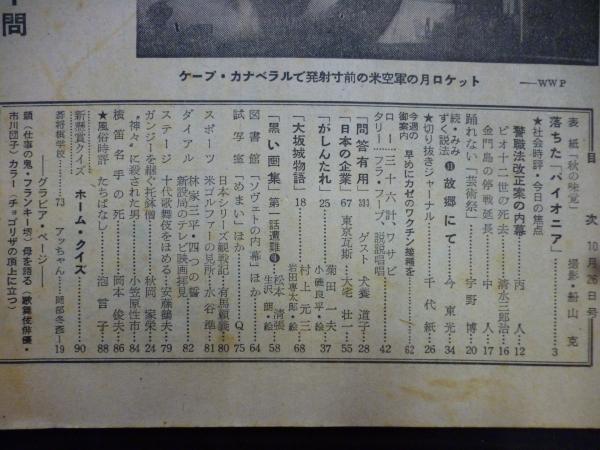 ケープ・カナベラルで発射寸前の米空軍の月ロケット
——WWP
目次 10月26日号
表紙「秋の味覚」 撮影・船山克
落ちた「パイオニア」 3
★社会時評・今日の焦点
警職法改正案の内幕 丙人 12
ピオ十二世の死去 清水三郎治 16
金門島の停戦延長 中人 17
踊れない「芸術祭」 宇野博 20
続・みみずく説法 ⑪ 故郷にて 今東光 34
★切り抜きジャーナル 千代紙 26
今週の御案内 早めにカゼのワクチン接種を 62
ロータリー 三十六計、ワサビ
フラ・フープ、説説唱唱 42
「問答有用」 ゲスト 犬養道子 28
「日本の企業」 67 東京瓦斯 大宅壮一 55
「がしんたれ」 25 菊田一夫
小磯良平・絵 37
「大坂城物語」 18 村上元三
岩田専太郎・絵 68
「黒い画集」 第一話遭難④ 松本清張
生沢朗・絵 58
図書館 「ソヴェトの内幕」ほか 64
試写室 「めまい」ほか Q 75
スポーツ 日本シリーズ観戦記・有馬頼義 80
米ゴルファーの見所・水谷準 81
ダイアル 林家三平・四つの誓
新設局のテレビ映画拝見 82
ステージ 十代歌舞伎をほめる・安藤鶴夫 79
ガンジーを継ぐ托鉢僧 秋岡家栄 24
“神々”に殺された男 小笠原性市 84
横笛名手の死 岡本俊夫 86
★風俗時評 たちばなし 泡言子 88
新懸賞クイズ ホーム・クイズ 90
碁将棋学校 73 アッちゃん 岡部冬彦 19
グラビア・ページ
顔(仕事の鬼・フランキー堺) 母を語る(歌舞伎俳優・
市川団子) カラー(チョゴリザの頂上に立つ)